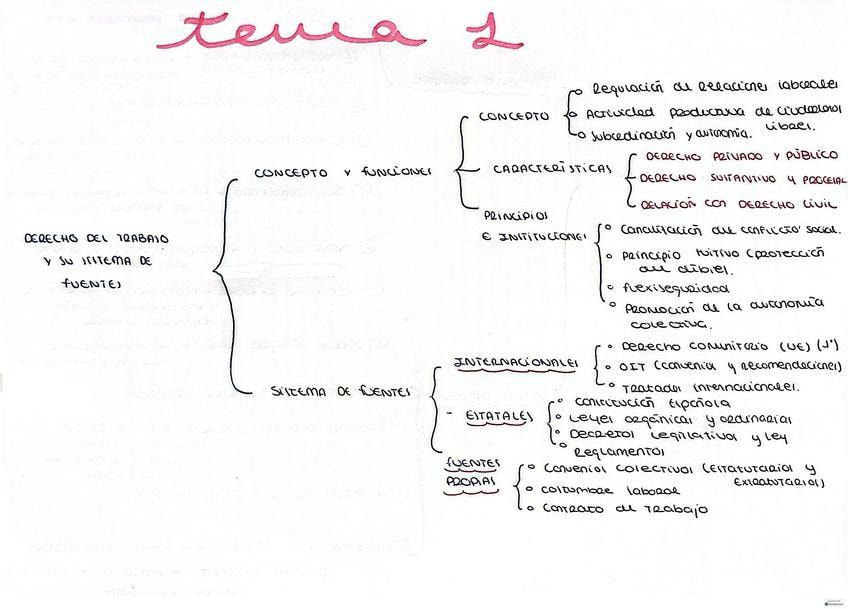 tema 1
DERECHO DEL TRABAJO
Y SU SISTEMA DE
FUENTES
CONCEPTO Y FUNCIONES
CONCEPTO
Regulación de relaciones laborales
Actividad productiva de ciudadanos
libres.
Subordinación y autonomía.
CARACTERÍSTICAS
DERECHO PRIVADO Y PÚBLICO
DERECHO SUSTANTIVO Y PROCESAL
RELACIÓN CON DERECHO CIVIL
PRINCIPIOS
E INSTITUCIONES
Canalización del conflicto social.
Principio tuitivo (protección
del débil).
Flexiseguridad
Promoción de la autonomía
colectiva.
SISTEMA DE FUENTES
INTERNACIONALES
Derecho comunitario (UE) (1º)
OIT (convenios y recomendaciones)
Tratados internacionales.
- ESTATALES
Constitución Española
Leyes orgánicas y ordinarias
Decretos legislativos y ley
Reglamentos
FUENTES
PROPIAS
Convenios colectivos (estatutarios y
extraestatutarios)
Costumbre laboral
Contrato de trabajo